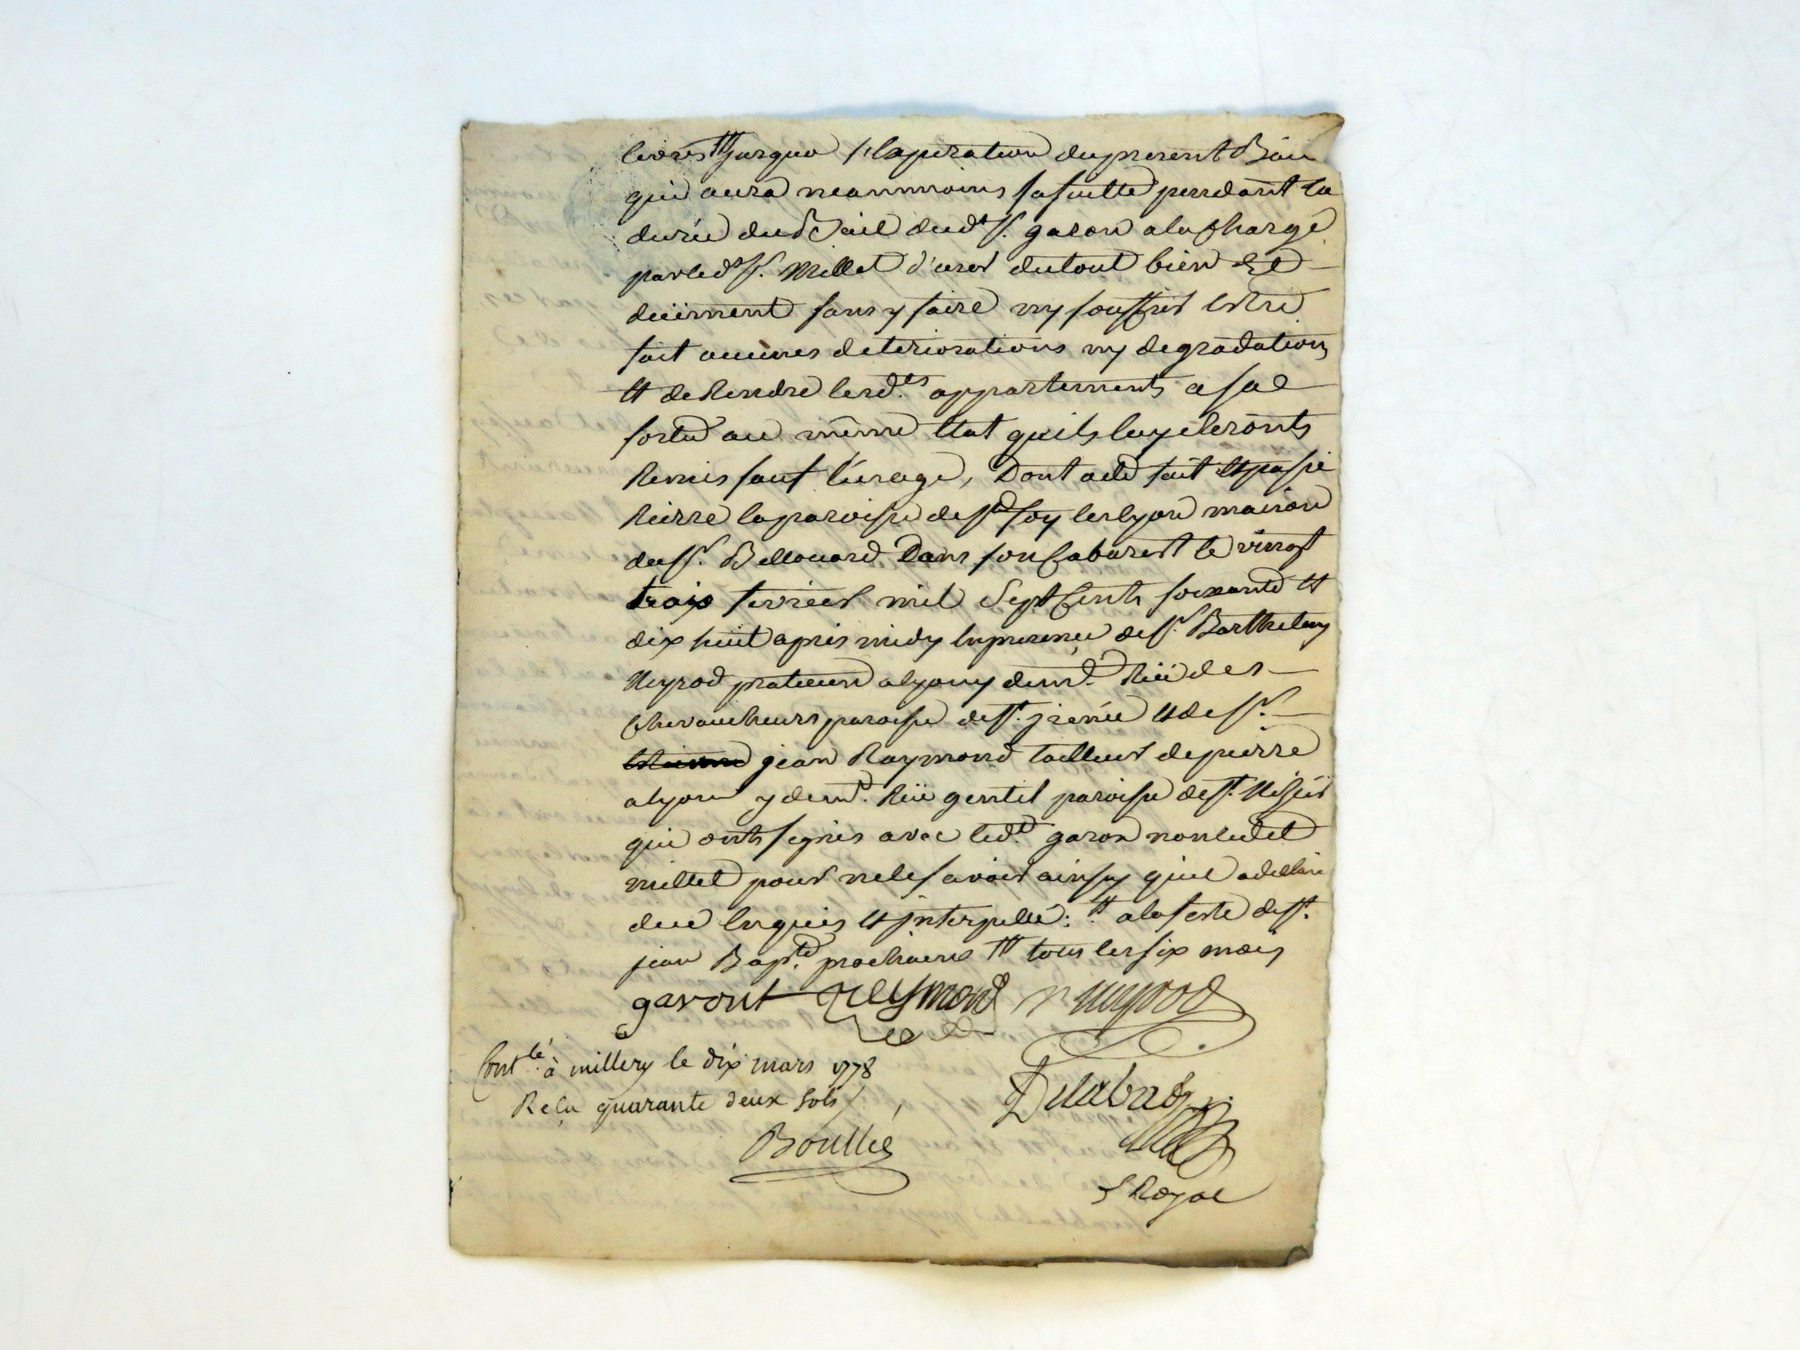 livres # jusqua l'expiration du present Bail
qui aura neanmoins sa suitte pendant la
durée dud Bail dudt Sr. garon a la Charge
par led. Sr. Millet d'user du tout bien Et
düement sans y faire ny souffrir Estre
fait aucunes deteriorations ny degradations
Et de Rendre lesd.ts appartements a sa
sortie au même Etat quils luy seronts
Remis sauf l'usage, Dont acte fait Et passé
Riere la paroisse de Ste foy les lyon maison
du Sr. Bellouard Dans son Cabaret le vingt
trois fevrier mil Sept Cents soixante Et
dix huit apres midy En presence de Sr. Barthelemy
Neyrod praticien a lyon y demt. Rüe des
Chevaucheurs paroisse de St. jrenée Et de Sr.
jean Raymond tailleur de pierre
a lyon y demt. Rüe gentil paroisse de St. Nizier
qui onts signés avec led.t garon non ledit
millet pour ne le savoir ainsy quil a declaré
de ce Enquis Et jnterpellé: # a la feste de St.
jean Bapte. prochaine # tous les six mois
garont Reymond Neyrod
Contlé. à millery le dix mars 1778
Reçu quarante deux sols
Boullié
Delabas
N Royal